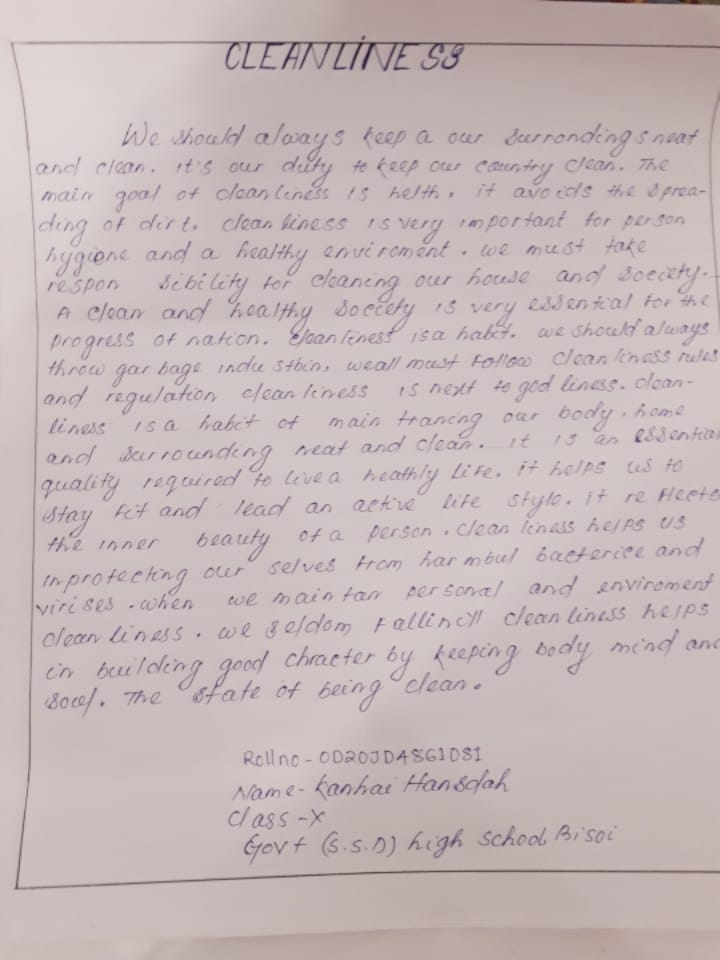 CLEANLINESS
We should always keep a our surrondings neat
and clean. it's our duty to keep our country clean. The
main goal of cleanliness is helth. it avoids the sprea-
ding of dirt. cleanliness is very important for person
hygiene and a healthy enviroment. we must take
respon sibility for cleaning our house and soceity.
A clean and healthy soceity is very essential for the
progress of nation. cleanliness is a habit. we should always
throw garbage indu stbin, we all must follow cleanliness rules
and regulation cleanliness is next to god liness. clean-
liness is a habit of main traning our body. home
and surrounding neat and clean. it is an essential
quality required to live a heathly life. it helps us to
stay fit and lead an active life style. it re flects
the inner beauty of a person. clean liness helps us
inprotecting our selves from har mbul bacteriee and
virises. when we main tan personal and enviroment
clean liness. we seldom fallincll cleanliness helps
in building good chracter by keeping body mind and
soul. The state of being clean.
Roll no - OD20JD4861081
Name - Kanhai Hansdah
Class - X
Govt (S.S.D) high school Bisoi